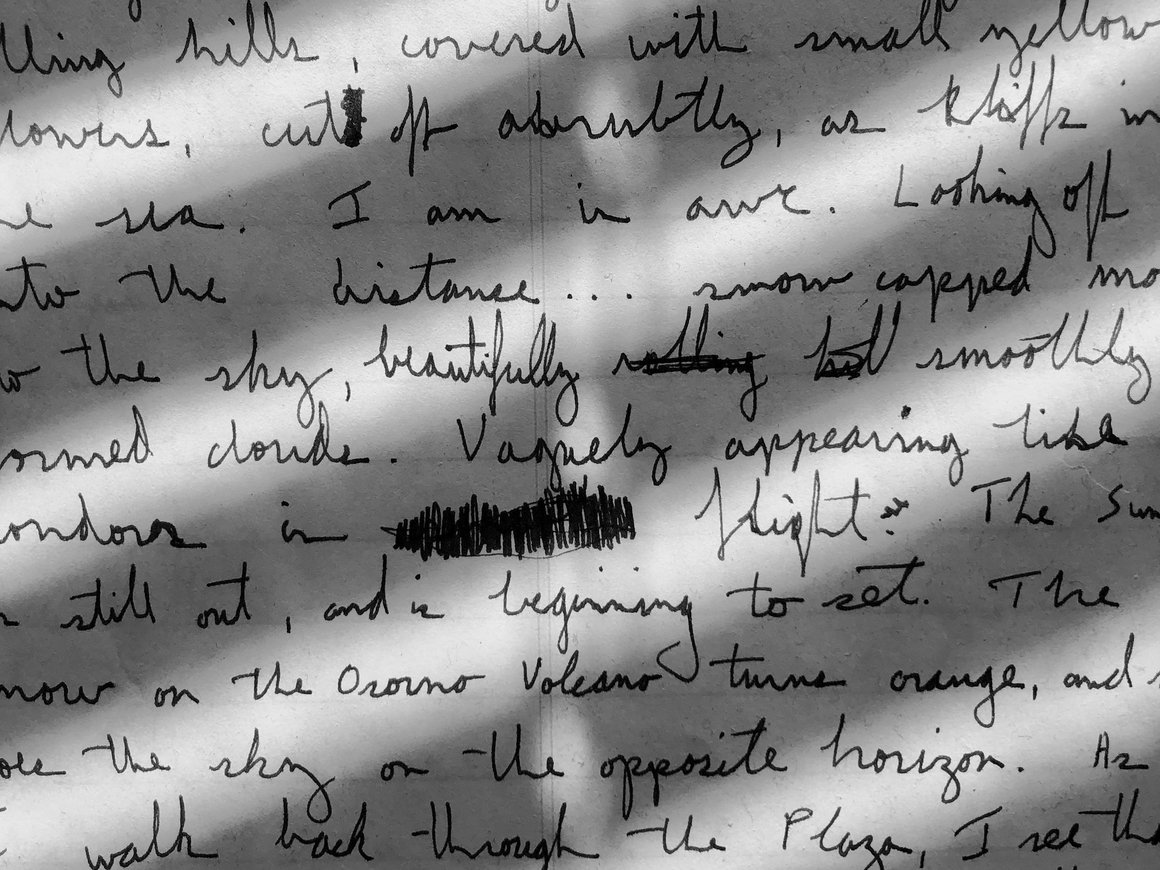 lling hills, covered with small yellow
lowers, cut off abrubtly, as kliffs in
he sea. I am in awe. Looking off
nto the distanse... snow capped mo
w the sky, beautifully rolling smoothly
ormed clouds. Vaguely appearing like
ondors in flight. The Sun
still out, and is beginning to set. The
now on the Osorno Volcano turns orange, and
oes the sky on the opposite horizon. As
I walk back through the Plaza, I see tha